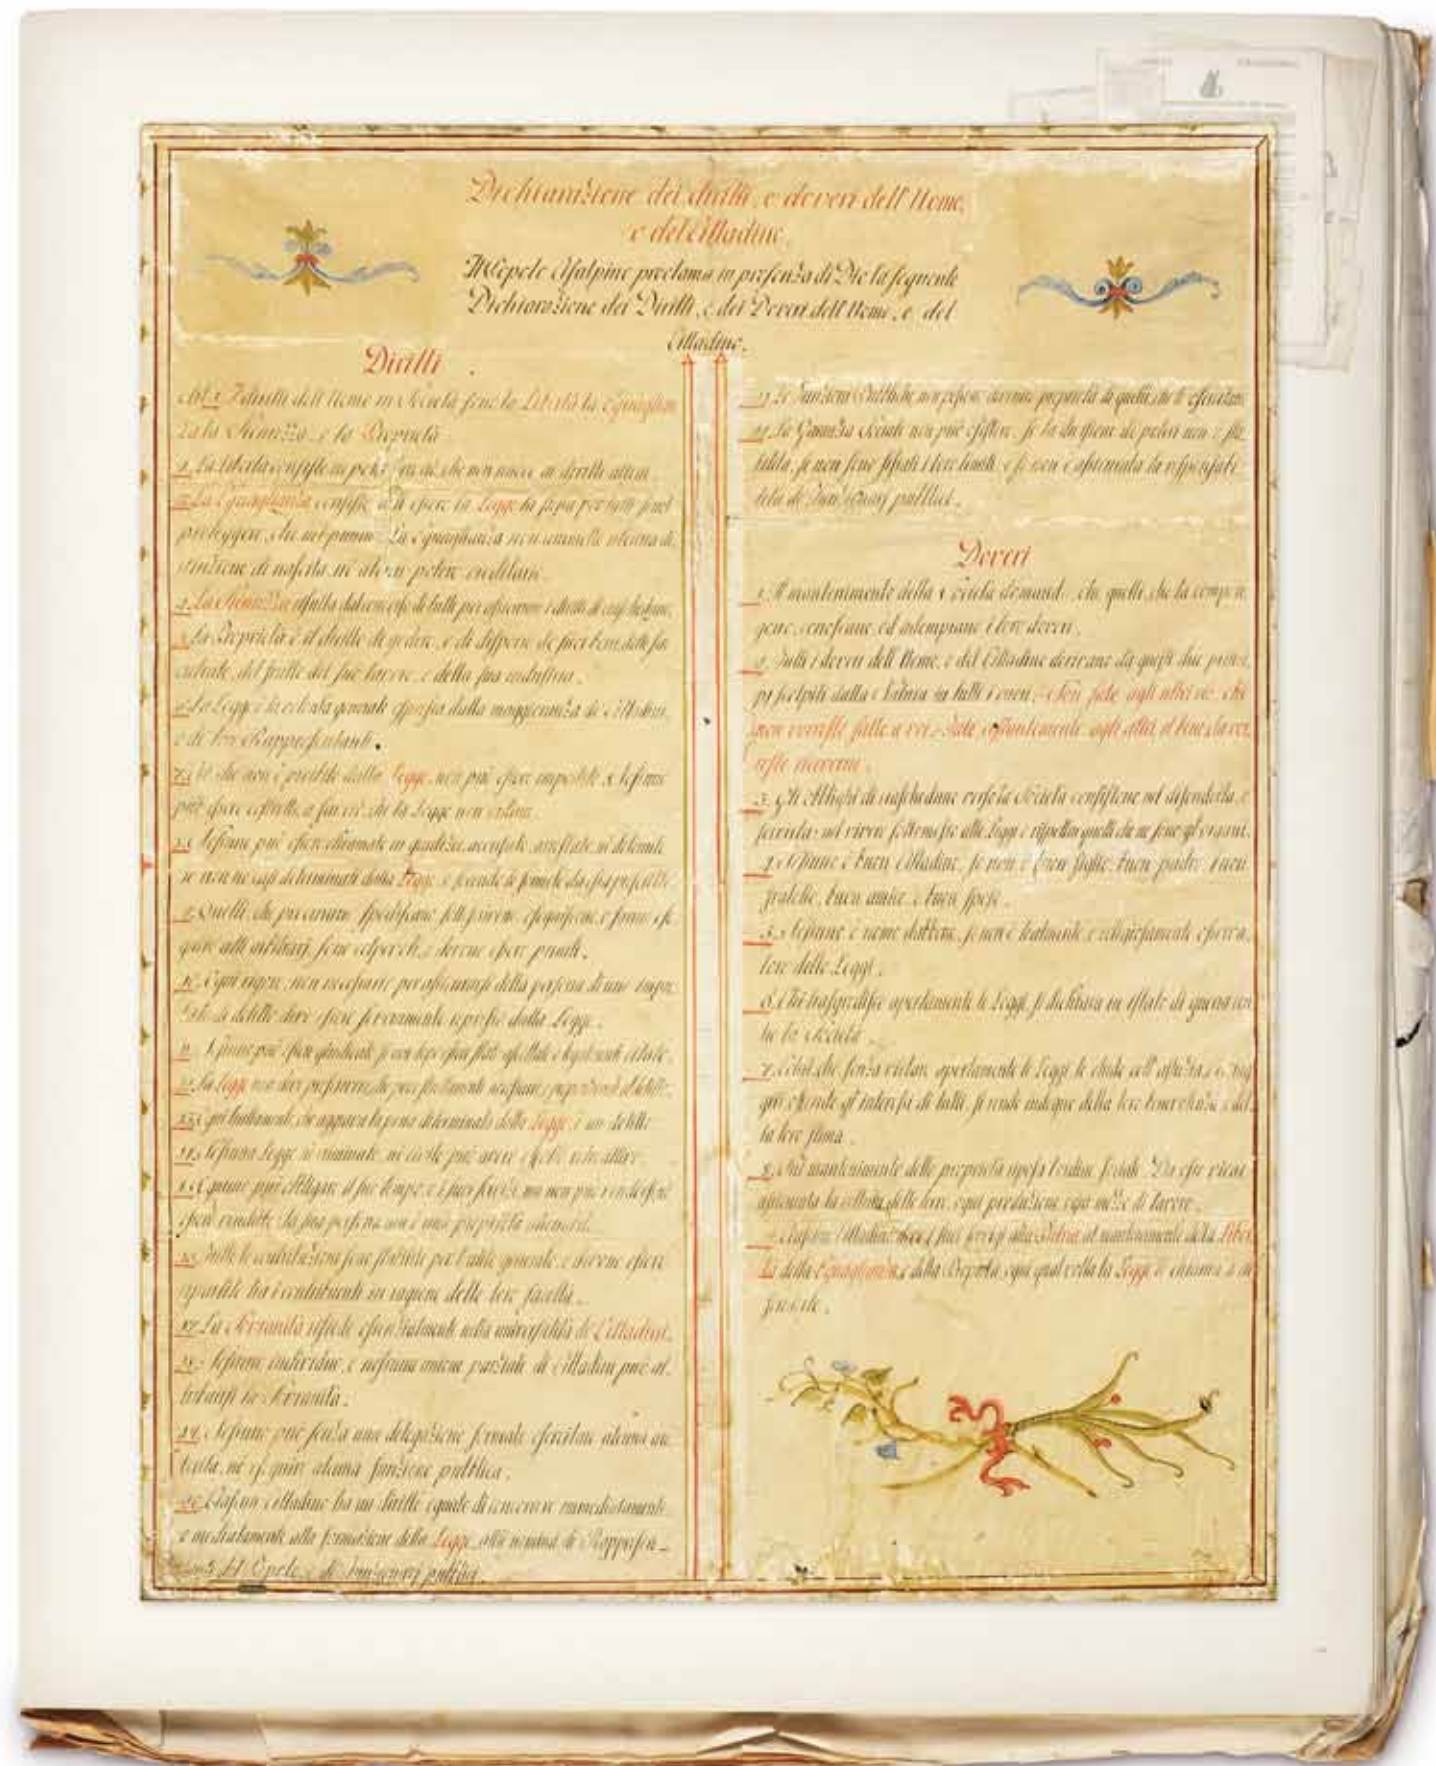 Dichiarazione dei diritti, e doveri dell'Uomo,
e del Cittadino.
Il Popolo Cisalpino proclama in presenza di Dio la seguente
Dichiarazione dei Diritti, e dei Doveri dell'Uomo, e del
Cittadino.
Diritti
Art. 1 I diritti dell'Uomo in Società sono la Libertà la Eguaglian
za la Sicurezza, e la Proprietà
2. La Libertà consiste in poter far ciò, che non nuoce ai diritti altrui
3. La Eguaglianza consiste in essere la Legge la stessa per tutti sia nel
proteggere, che nel punire. La Eguaglianza non ammette alcuna di
stinzione di nascita, né alcun potere ereditario.
4. La Sicurezza risulta dal concorso di tutti per assicurare i diritti di ciascheduno.
5. La Proprietà è il diritto di godere, e di disporre de suoi beni, delle sue
entrate, del frutto del suo lavoro, e della sua industria.
6. La Legge è la volontà generale espressa dalla maggioranza de Cittadini,
o de loro Rappresentanti.
7. Ciò che non è proibito dalla Legge, non può essere impedito. Nessuno
può essere costretto a far ciò, che la Legge non ordina.
8. Nessuno può essere chiamato in giudizio, accusato, arrestato, né detenuto
se non ne casi determinati dalla Legge, e secondo le formole da essa prescritte
9. Quelli, che procurano, spediscono, sottoscrivono, eseguiscono, o fanno ese
guire atti arbitrarj, sono colpevoli, e devono essere puniti.
10. Ogni rigore, non necessario per assicurarsi della persona di uno impu
tato di delitto deve essere severamente represso dalla Legge.
11. Nessuno può essere giudicato se non dopo essere stato ascoltato, o legalmente citato.
12. La Legge non deve prescrivere, che pene strettamente necessarie, e proporzionate al delitto.
13. Ogni trattamento, che aggrava la pena determinata dalla Legge, è un delitto
14. Nessuna Legge né criminale, né civile può avere effetto retroattivo.
15. Ognuno può obbligare il suo tempo, e i suoi servizj, ma non può vendersi né
essere venduto. La sua persona non è una proprietà alienabile.
16. Tutte le contribuzioni sono stabilite per l'utile generale, e devono essere
ripartite tra i contribuenti in ragione delle loro facoltà.
17. La Sovranità risiede essenzialmente nella universalità de Cittadini.
18. Nessuno individuo, e nessuna unione parziale di Cittadini può at
tribuirsi la Sovranità.
19. Nessuno può senza una delegazione formale esercitare alcuna au
torità, né eseguire alcuna funzione pubblica.
20. Ciascun Cittadino ha un diritto eguale di concorrere immediatamente
o mediatamente alla formazione della Legge, alla nomina de Rappresen-
tanti del Popolo, e de Funzionarj pubblici.
21. Le Funzioni Pubbliche non possono divenire proprietà di quelli, che le esercitano
22. La Garanzia Sociale non può esistere, se la divisione de poteri non è sta
bilita, se non sono fissati i loro limiti, e se non è assicurata la responsabi
lità de Funzionarj pubblici.
Doveri
1. Il mantenimento della Società domanda, che quelli, che la compon
gono, conoscano, ed adempiano i loro doveri.
2. Tutti i doveri dell'Uomo, e del Cittadino derivano da questi due princi
pj scolpiti dalla Natura in tutti i cuori. Non fate agli altri ciò, che
non vorreste fatto a voi. Fate costantemente agli altri il bene, che vor
reste ricevere.
3. Gli Obblighi di ciascheduno verso la Società consistono nel difenderla, e
servirla: nel vivere sottomesso alle Leggi e rispettar quelli che ne sono gl'organi.
4. Nessuno è buon Cittadino, se non è buon figlio, buon padre, buon
fratello, buon amico, e buon sposo.
5. Nessuno è uomo dabbene, se non è lealmente, e religiosamente osserva
tore delle Leggi.
6. Chi trasgredisce apertamente le Leggi, si dichiara in istato di guerra con
tro la Società.
7. Colui, che senza violare apertamente le Leggi, le elude coll'astuzia, e co rag
giri offende gl'interessi di tutti, si rende indegno della loro benevolenza, e del
la loro stima.
8. Sul mantenimento delle proprietà riposa l'ordine Sociale. Da esso viene
assicurata la coltura delle terre, ogni produzione, ogni mezzo di lavoro.
9. Ciascun Cittadino deve i suoi servizj alla Patria, al mantenimento della Liber
tà, della Eguaglianza, e della Proprietà, ogni qual volta la Legge lo chiama a di
fenderle.